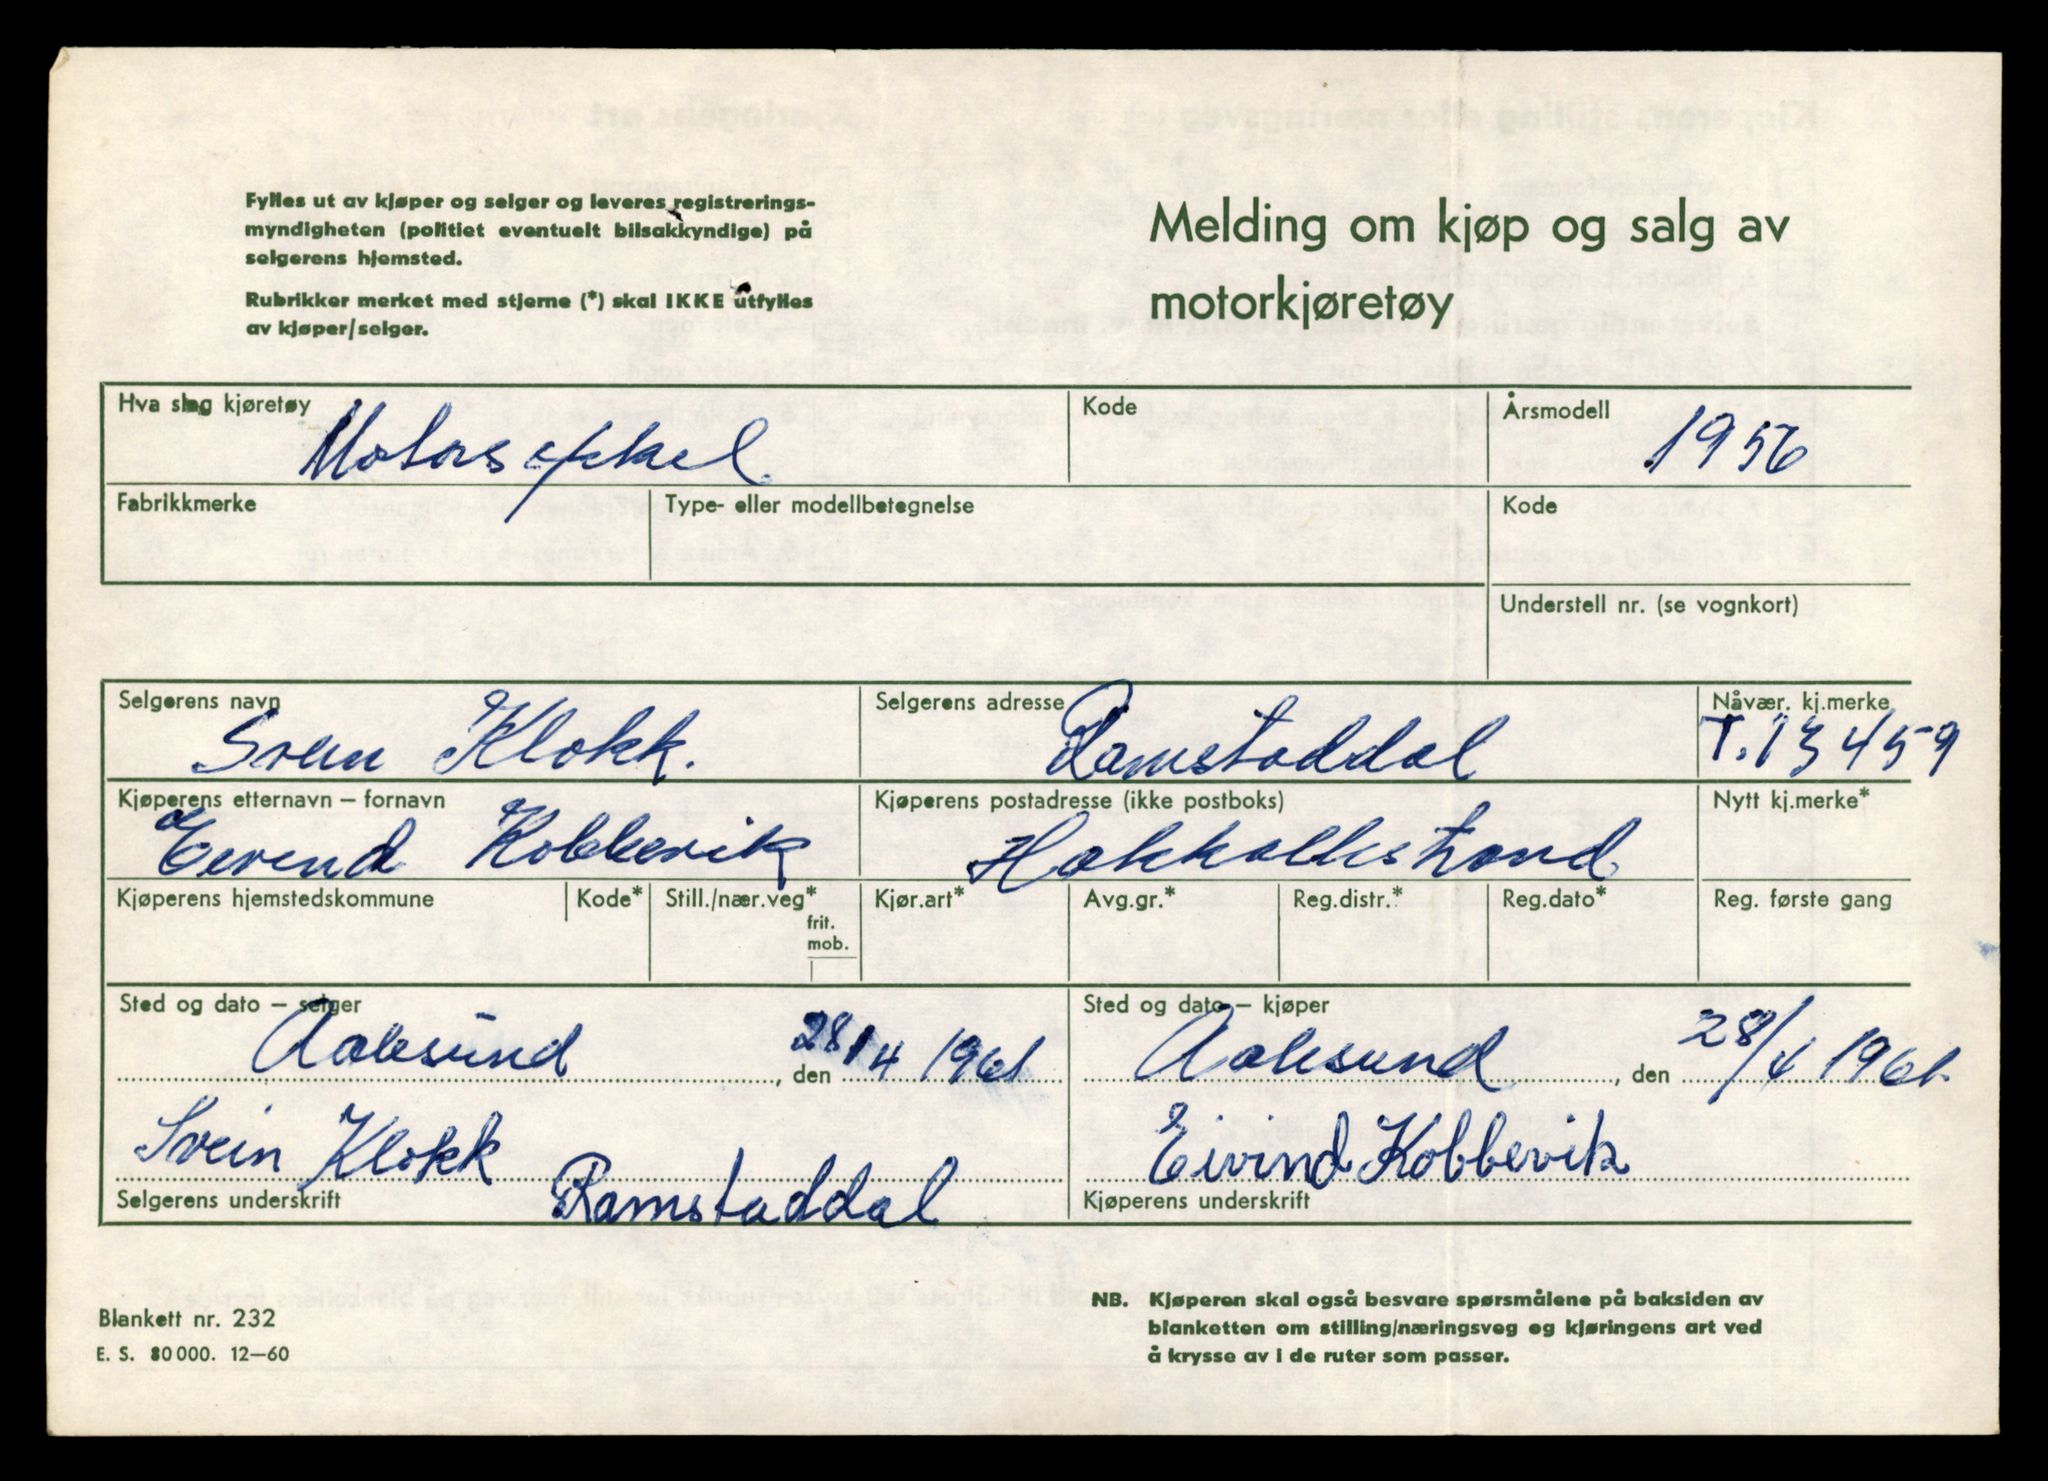 Fylles ut av kjøper og selger og leveres registrerings-
myndigheten (politiet eventuelt bilsakkyndige) på
selgerens hjemsted.
Rubrikker merket med stjerne (*) skal IKKE utfylles
av kjøper/selger.
Melding om kjøp og salg av
motorkjøretøy
Hva slag kjøretøy Motorsykkel Kode Årsmodell 1956
Fabrikkmerke Type- eller modellbetegnelse Kode
Understell nr. (se vognkort)
Selgerens navn Selgerens adresse Nåvær. kj.merke
Svein Klokk. Ramstaddal T.13459
Kjøperens etternavn – fornavn Kjøperens postadresse (ikke postboks) Nytt kj.merke*
Eivind Kobbevik
Kjøperens hjemstedskommune Kode* Still./nær.veg* Kjør.art* Avg.gr.* Reg.distr.* Reg.dato* Reg. første gang
frit.
mob.
Sted og dato – selger Sted og dato – kjøper
Aalesund, den 28/4 1961 Aalesund, den 28/4 1961.
Svein Klokk Eivind Kobbevik
Selgerens underskrift Ramstaddal Kjøperens underskrift
Blankett nr. 232
E. S. 80 000. 12–60
NB. Kjøperen skal også besvare spørsmålene på baksiden av
blanketten om stilling/næringsveg og kjøringens art ved
å krysse av i de ruter som passer.